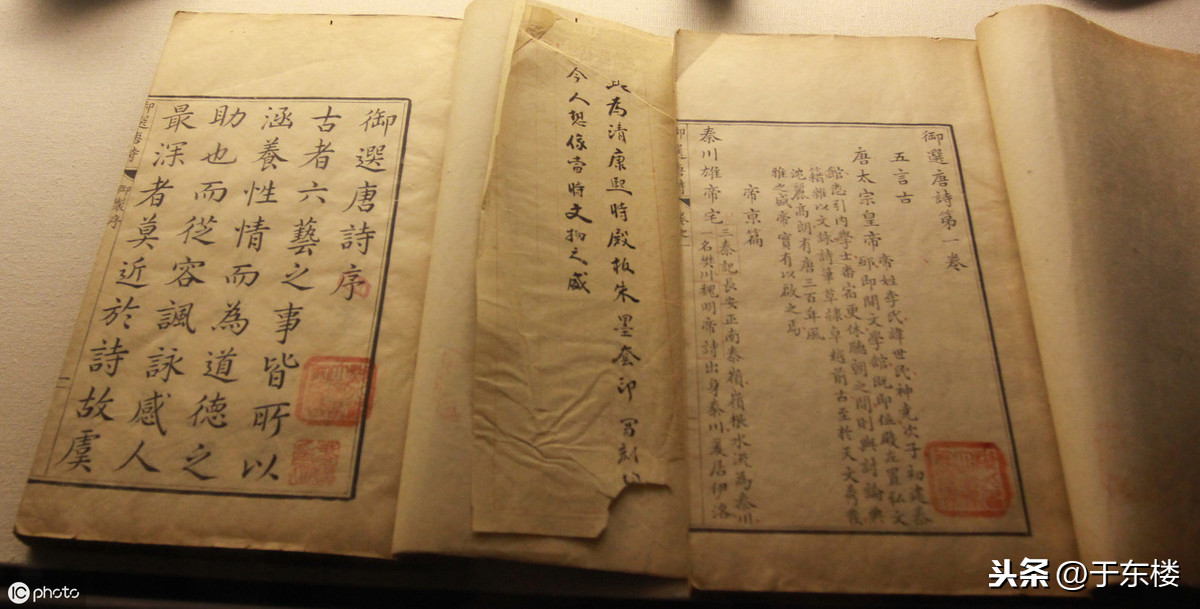 御選唐詩序
古者六藝之事皆所以
涵養性情而為道德之
助也而從容諷詠感人
最深者莫近於詩故虞
御選唐詩 御製序 一
此為清康熙時殿板朱墨套印 寫刻
今人想像當時文物之盛
御選唐詩第一卷
五言古
唐太宗皇帝 帝姓李氏諱世民神堯次子初建秦
邸即開文學館既即位殿左置弘文
館悉引内學士番宿更休聽朝之間則與討論典
籍雜以文詠詩筆草隸卓越前古至於天文秀發
沈麗高朗有唐三百年風
雅之盛帝實有以啟之焉
帝京篇
秦川雄帝宅 三秦記長安正南秦嶺嶺根水流為秦川
一名樊川魏明帝詩出身秦川爰居伊洛
御選唐詩 卷之一
iC photo
头条 @于东楼